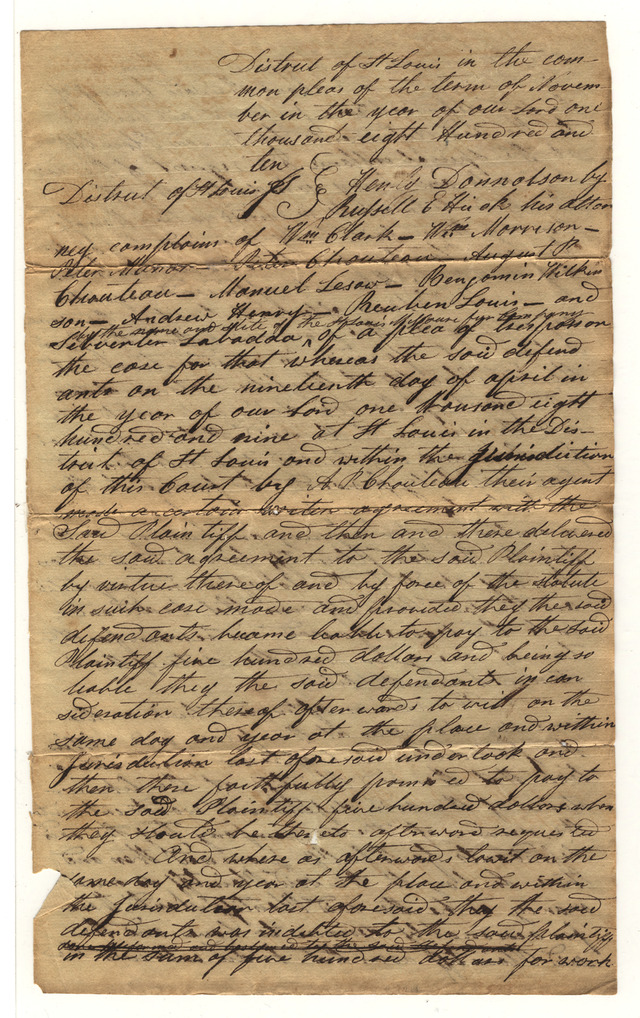 District of St Louis in the com-
mon pleas of the term of Novem-
ber in the year of our Lord one
thousand eight Hundred and
ten
District of St Louis Henry Donnalson by
Russell E Hicok his attor
ney complains of Wm Clark - Wm Morrison -
Peter Manor - Peter Chouteau - August P
Chouteau - Manuel Lesow - Benjamin Wilkin
son - Andrew Henry - Reuben Louis - and
by the name and stile of the St Louis Missouri fur company
Selvester Labadda of a plea of trespass on
the case for that whereas the said defend
ants on the nineteenth day of april in
the year of our Lord one thousand eight
hundred and nine at St Louis in the Dis-
trict of St Louis and within the Jurisdiction
of this Court by A P Chouteau their agent
made a certain writen agreement with the
Said Plaintiff and then and there delivered
the said agreement to the said Plaintiff
by virtue thereof and by force of the statute
in such case made and provided they the said
defendants became liable to pay to the said
Plaintiff five hundred dollars and being so
liable they the said defendants in con
sideration thereof afterwords to wit on the
same day and year at the place and within
Jurisdiction last aforesaid undertook and
then there faithfully promised to pay to
the said Plaintiff five hundred dollars when
they should be thereto afterword requested
And where as afterwords towit on the
same day and year at the place and within
the Jurisdiction last aforesaid they the said
defendants was indebted to the said plaintiff
in the sum of five hundred dollars for work